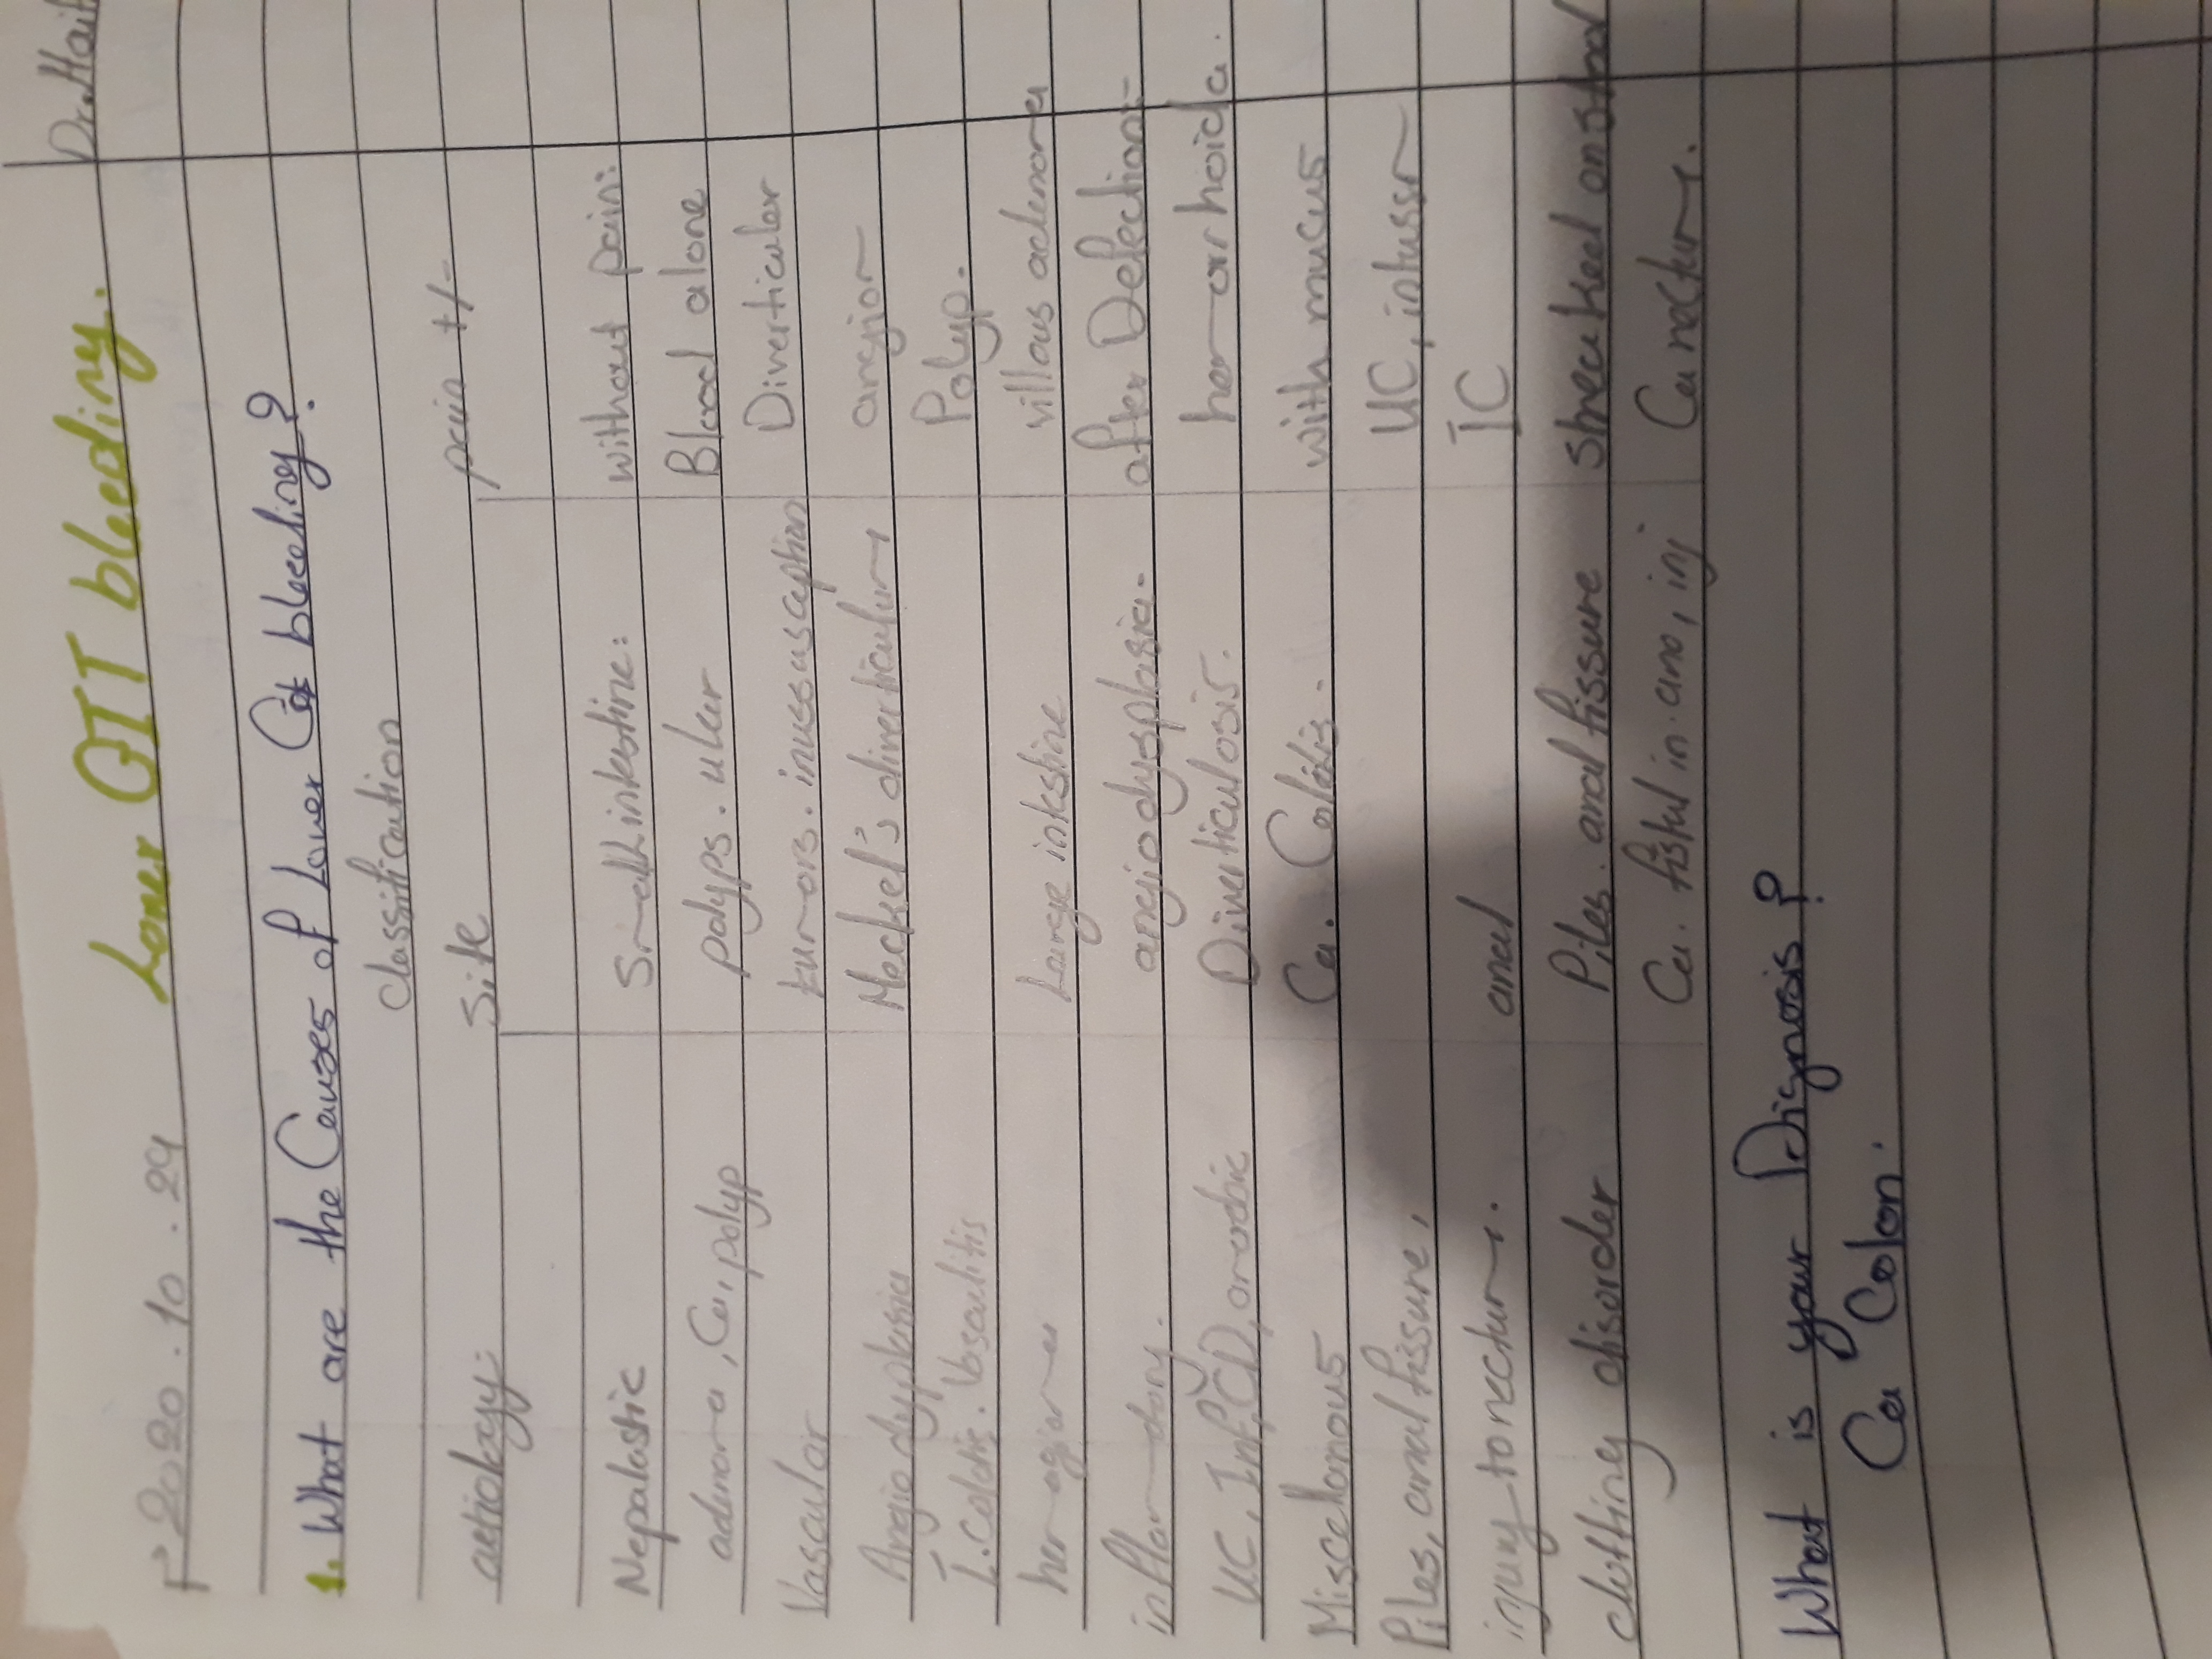 2020.10.24 Lower GIT bleeding. Dr. Hait
1. What are the Causes of Lower GI bleeding?
classification
aetiology: Site pain +/-
Nepalastic Small intestine: without pain:
adenoma, Ca, polyp polyps. ulcer Blood alone
Vascular tumors. inussusaption Diverticular
Angiodyplasia Meckel's diverticulum angiom
I. Colitis. Vasculitis Polyp.
hemagiomas Large intestine villous adenoma
inflammatory. angiodysplasia. after Defection:
UC, Inf, CD, amoebic Diverticulosis. hemorrhoids.
Miscelanous Ca. Colitis. with mucus
Piles, anal fissure, UC, intussm
injury to rectum. anal IC
clotting disorder Piles. anal fissure streaked on stool
Ca. fistul in.ano, inj Ca rectum.
What is your Diagnosis?
Ca Colon.